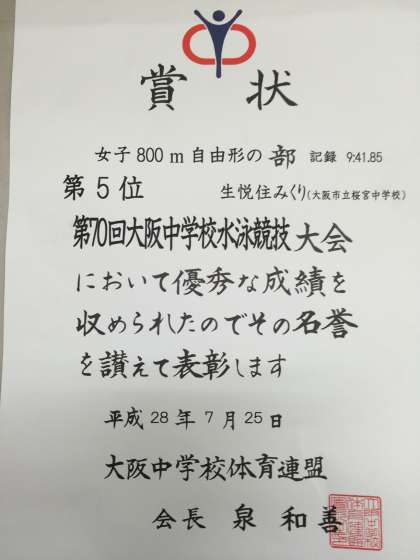 賞状
女子800m自由形の部 記録 9:41.85
第5位 生悦住みくり(大阪市立桜宮中学校)
第70回大阪中学校水泳競技大会
において優秀な成績を
収められたのでその名誉
を讃えて表彰します
平成28年7月25日
大阪中学校体育連盟
会長 泉 和善